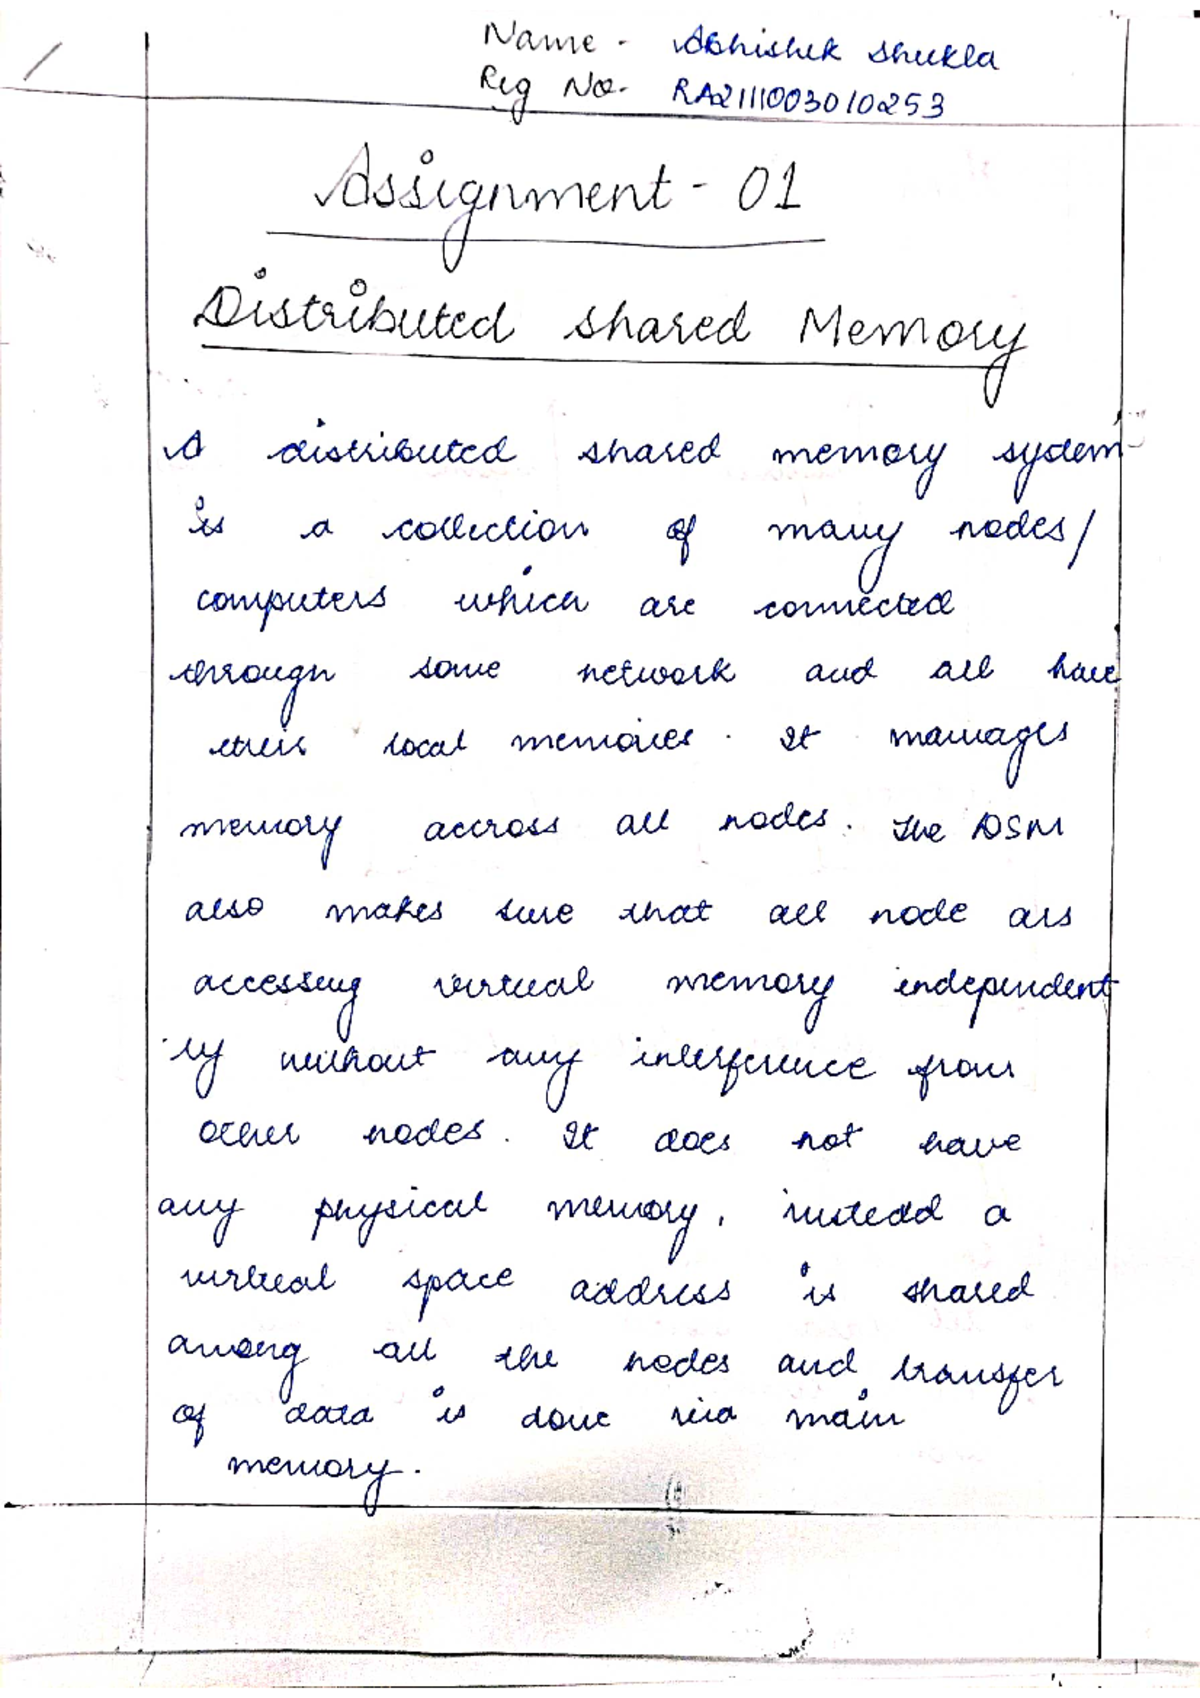 Name - Abhishek Shukla
Reg No. RA2111003010253
Assignment - 01
Distributed shared Memory
A distributed shared memory system
is a collection of many nodes/
computers which are connected
through some network and all have
their local memories. It manages
memory accross all nodes. The DSM
also makes sure that all node ars
accessing virtual memory independent
ly without any interference from
other nodes. It does not have
any physical memory, instedd a
virtual space address is shared
among all the nodes and transfer
of data is done via main
memory.